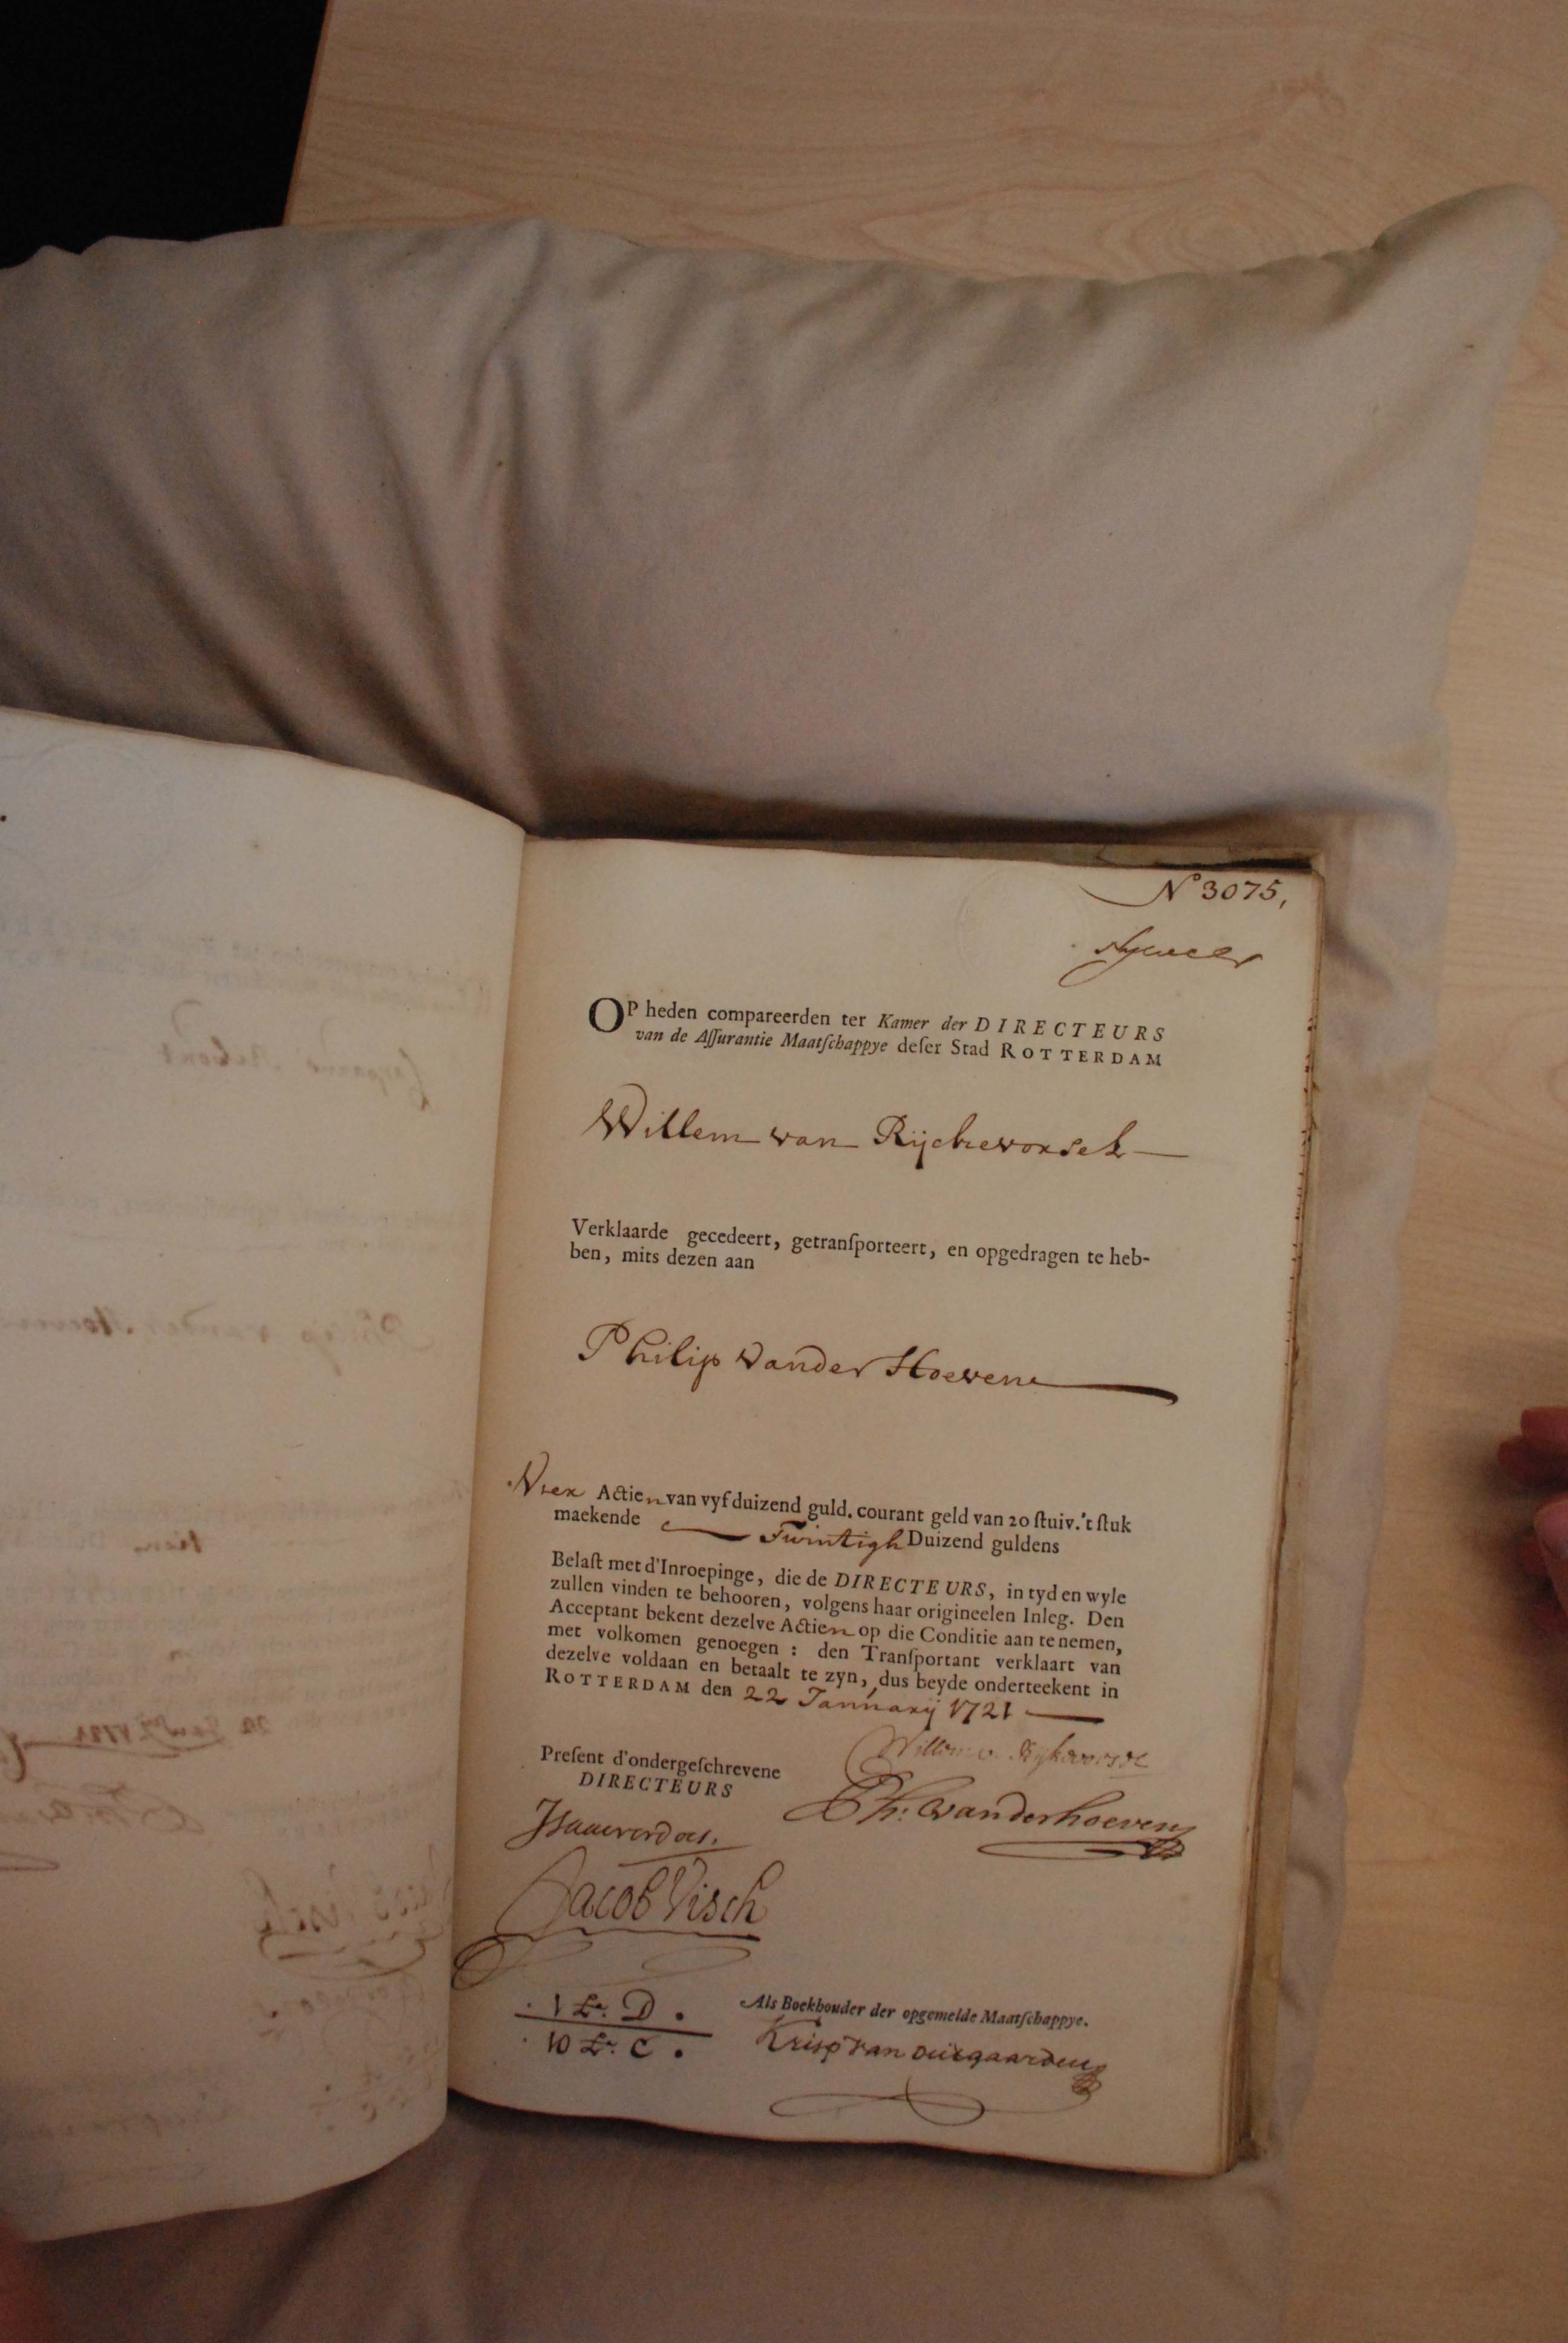 No 3075,
OP heden compareerden ter Kamer der DIRECTEURS
van de Aſſurantie Maatſchappye deſer Stad ROTTERDAM
Willem van Rijckevorsel
Verklaarde gecedeert, getranſporteert, en opgedragen te heb-
ben, mits dezen aan
Philip vander Hoeven
Vier Actien van vyf duizend guld. courant geld van 20 ſtuiv. 't ſtuk
maekende Twintigh Duizend guldens
Belaſt met d'Inroepinge, die de DIRECTEURS, in tyd en wyle
zullen vinden te behooren, volgens haar origineelen Inleg. Den
Acceptant bekent dezelve Actien op die Conditie aan te nemen,
met volkomen genoegen : den Tranſportant verklaart van
dezelve voldaan en betaalt te zyn, dus beyde onderteekent in
ROTTERDAM den 22 Januarij 1721
Preſent d'ondergeſchrevene
DIRECTEURS
Ph: vanderhoeven
Jacob Visch
1 Lr. D.
10 Lr. C.
Als Boekhouder der opgemelde Maatſchappye.